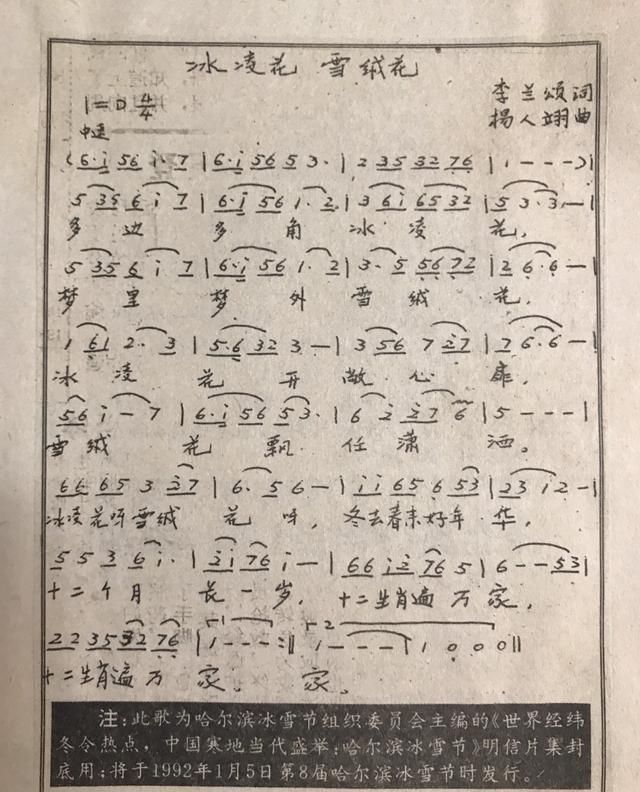 冰凌花 雪绒花
李兰颂词
1=D 4/4
杨人翊曲
中速
(6·i 56 i· 7 | 6·i 56 5 3· | 2 35 32 76 | 1 - - - )
5 35 6 i 7 | 6·i 56 1· 2 | 3 6i 65 32 | 5 3·3· — |
多边 多角 冰凌 花,
5 35 6 i 7 | 6·i 56 1· 2 | 3· 5 56 72 | 2 6·6 — |
梦里 梦外 雪绒 花,
1 61 2· 3 | 5·6 32 3 — | 3 56 7 27 | 7 6·6 — |
冰凌 花开 敞心 扉,
56 i — 7 | 6·i 56 53· | 6 2 27 6 | 5 - - - |
雪绒 花飘 任潇 洒。
66 65 3 27 | 6· 56 — | ii 65 6 53 | 23 i2 — |
冰凌花呀雪绒 花呀, 冬去春来好年 华,
5 5 3 6i· | 2i 76 i — | 66 i2 76 5 | 6 - - 53 |
十二个月 长一岁, 十二生肖遍万 家,
22 35 32 76 | 1 - - - :|| 1 - - - | 1 0 0 0 ||
十二生肖遍万 家。 家。
注:此歌为哈尔滨冰雪节组织委员会主编的《世界经纬
冬令热点,中国寒地当代盛举:哈尔滨冰雪节》明信片集封
底用;将于1992年1月5日第8届哈尔滨冰雪节时发行。